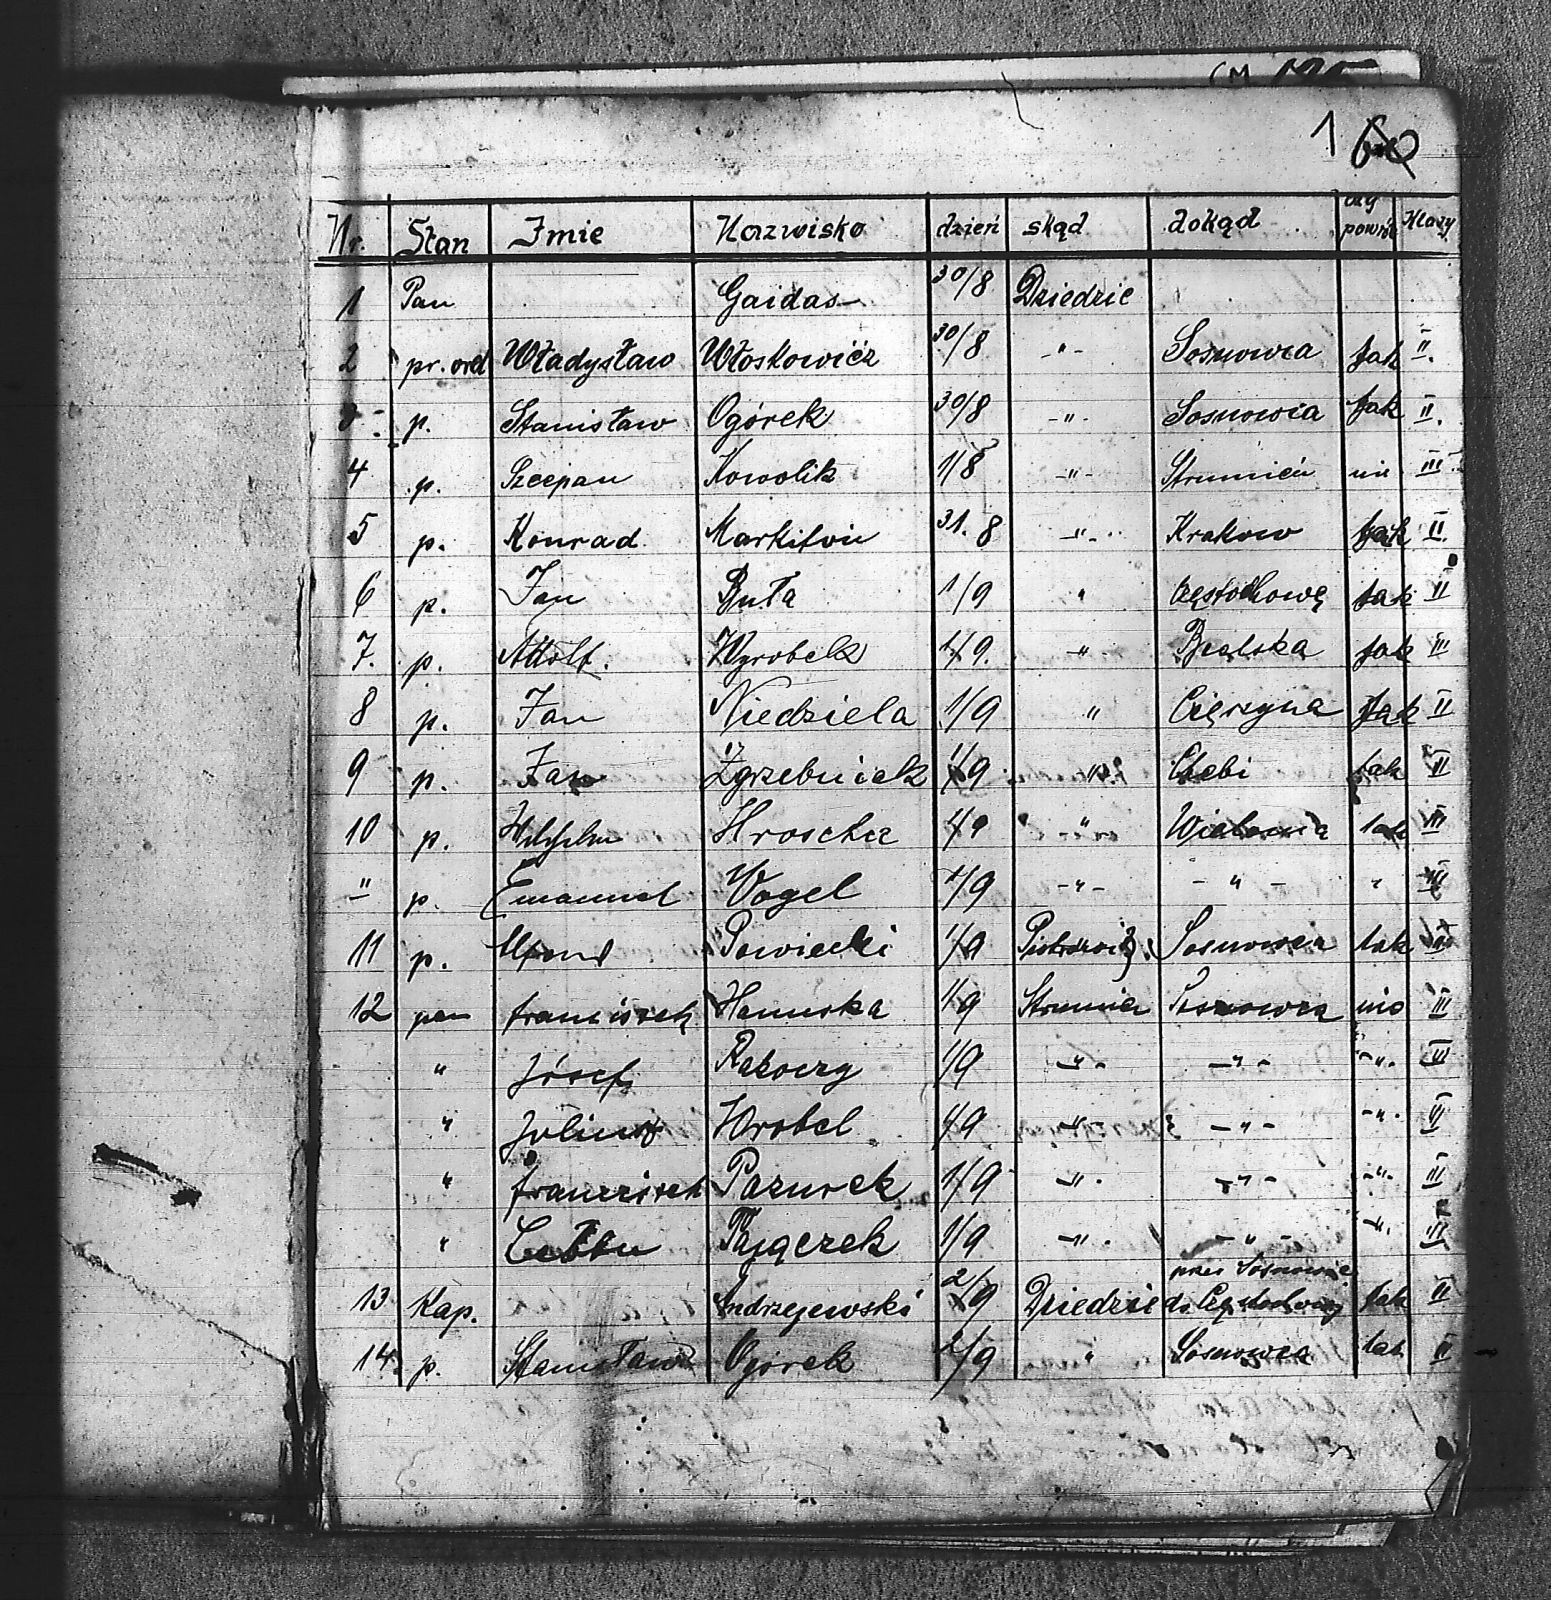 1
Nr. Stan Imie Nazwisko dzień skąd dokąd czy powrót Klasy
1 Pan Gaidas 30/8 Dziedzic
2 pr. ord Władysław Włoskowicz 30/8 -"- Sosnowca tak II.
p. Stanisław Ogórek 30/8 -"- Sosnowca tak II.
4 p. Szcepan Kowolik 1/8 -"- Strumień nie III
5 p. Konrad Markiton 31.8 -"- Krakow tak II.
6 p. Jan Buła 1/9 " Częstochowę tak II
7. p. Attolf. Wyrobek 1/9. " Bielska tak III
8 p. Jan Niedziela 1/9 " Cięszyna tak II
9 p. Jan Zgrzebniok 1/9 " tak III
10 p. Wilhelm Hroscha 1/9 " tak III
" p. Emanuel Vogel 1/9 -"- -"- " III
11 p. Sowiecki 1/9 Sosnowca tak III
12 pan franciszek Hanuska 1/9 Strumien Sosnowca nie III
" Józef Rakoczy 1/9 -"- -"- -"- III
" Juliusz Wrobel 1/9 -"- -"- -"- III
" franciszek Pazurek 1/9 -"- -"- -"- III
" Pajączek 1/9 -"- -"- -"- III
13 Kap. Andrzejewski 2/9 Dziedzic przez Sosnowiec do Częstochowy tak II
14. p. Stanisław Ogórek 2/9 " Sosnowca tak II